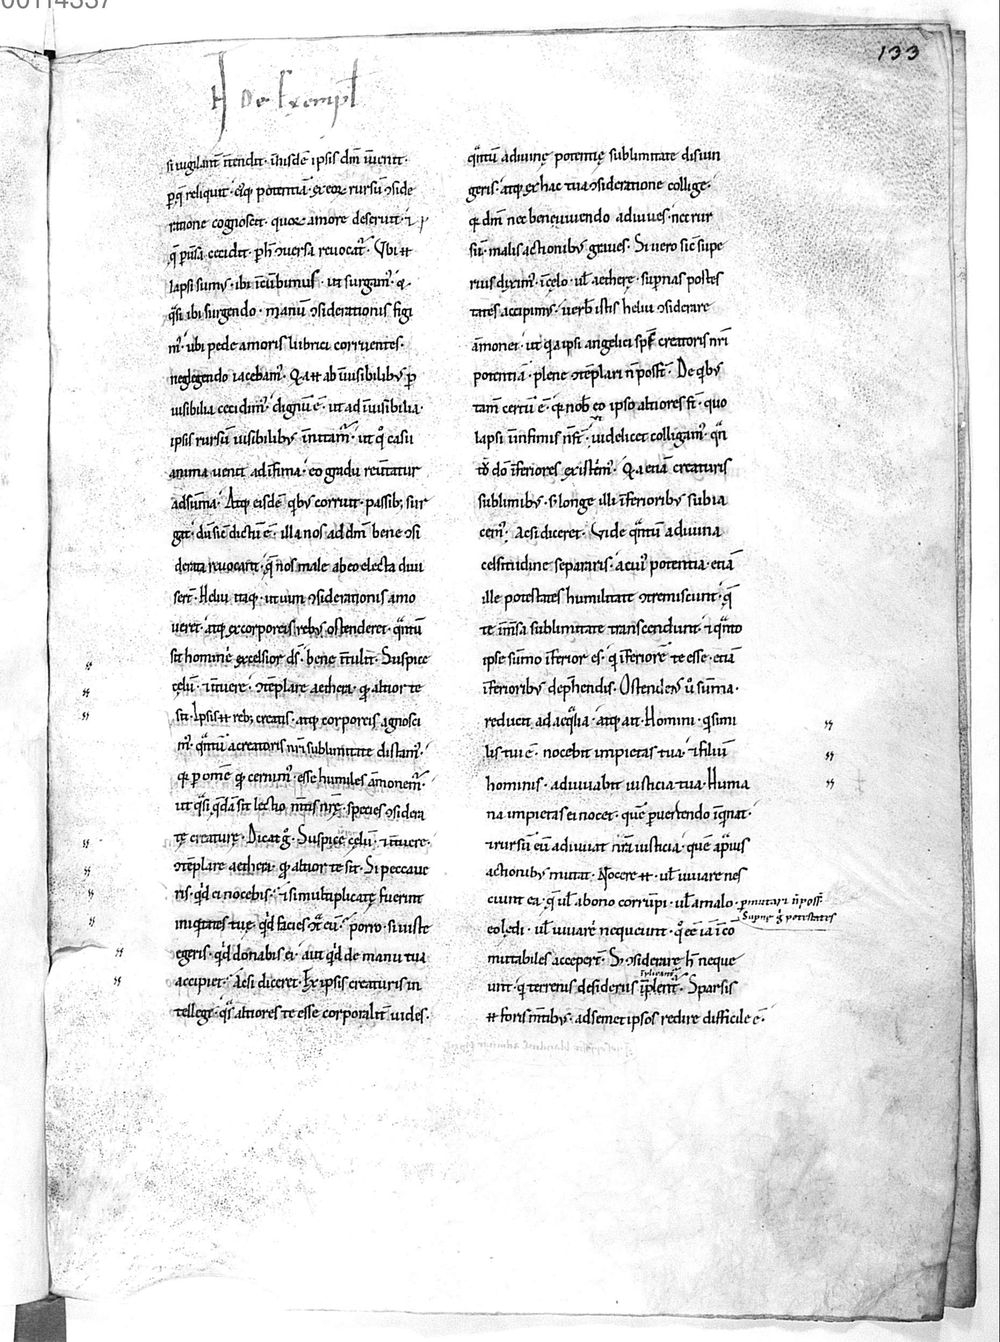 133
De Exempl
si uigilant̄ ītendit · īhisdē ipsis dm̄ īuenit ·
ꝑq̄ reliquit · eiꝰq; potentiā · ex eoꝝ rursū ↄside
ratione cognoscit · quoꝝ amore deseruit · ⁊ ꝑ
q̄ puīsa cecidit · ꝑ h̨ ↄuersa reuocat᷑ · Vbi ⁊t
lapsi sumꝰ · ibi īcūbimus · ut surgam᷑ · ⁊
q̄si ibi surgendo · manū ↄsiderationis figi
m᷑ · ubi pede amoris lubrici corruentes ·
neglegendo iacebam᷑ · Q̨a ⁊t ab īuisibilibꝰ ꝑ
uisibilia cecidim᷑ · dignū ē · ut ad īuisibilia ·
ipsis rursū uisibilibꝰ īnitam᷑ · ut qͦ casu
anima uenit ad īfima · eo gradu reūtatur
ad sūma · Atq; eisdē qͥbꝰ corruit · passibꝰ sur
gat · dū sic dictū ē · illa nos ad dm̄ bene ↄsi
derata reuocant · q̄ nos male ab eo electa diui
sert̄ · Heliu itaq; · ut uim ↄsiderationis amo
ueret · atq; ex corporeis rebꝰ ostenderet · qͣntū
sit homine excelsior ds̄ · bene ītulit · Suspice
cęlū · ⁊ ītuere · ↄtēplare aethera · qđ altior te
sit · Ipsis ⁊t rebꝰ creatis · atq; corporeis agnosci
m᷑ · qͣntū a creatoris nr̄i sublimitate distam᷑ ·
qđ ꝑ om̄e qđ cernim᷑ · esse humiles āmonem᷑ ·
ut qͣsi qͥdā sit lectio mētis nr̄ę · species ↄsidera
tę creaturę · Dicat gͦ · Suspice cęlū · ⁊ ītuere ·
ↄtēplare aethera · qđ altior te sit · Si peccaue
ris · qͥd ei nocebis · ⁊ si multiplicatę fuerint
iniqͥtates tuę · qͥd facies ↄͭ eū · porro si iuste
egeris · qͥd donabis ei · aut qͥd de manu tua
accipiet · Acsi diceret · Ex ipsis creaturis in
tellege · qͣs altiores te esse corporalit̄ uides ·
qͣntū a diuinę potentię sublimitate disiun
geris · atq; ex hac tua ↄsideratione collige ·
qđ dm̄ nec bene uiuendo adiuues · nec rur
sū · malis actionibꝰ graues · Si uero sic̄ supe
rius diximꝰ · ī cęlo · ul̄ aethere · supnas potes
tates accipimꝰ · uerb̄ istis heliu ↄsiderare
āmonet · ut qa ipsi angelici spc̄ creatoris nr̄i
potentiā · plene ↄtēplari n̄ poss̄t · De qͥbꝰ
tam̄ certū ē · qđ nob̄ eo ipso altiores st̄ · quo
lapsi ī infimis n̄ st̄ · uidelicet colligam᷑ · qͣn
to dō īferiores existem᷑ · Qa etiā creaturis
sublimibꝰ · s· longe illi īferioribꝰ subia
cem᷑ · Acsi diceret · Vide qͣntū a diuina
celsitudine separaris · a cuiꝰ potentia · etiā
ille potestates humilitate ↄtremiscunt · q̄
te im̄sa sublimitate transcendunt · ⁊ qͣnto
ipse sūmo īferior es · qͥ īferiorē te esse · etiā
īferioribꝰ dep̄hendis · Ostendens ū sūma ·
reducit ad aeq̄lia · atq; ait · Homini · qͥ simi
lis tui ē · nocebit impietas tua · ⁊ filiū
hominis · adiuuabit iusticia tua · Huma
na impietas ei nocet · quē puertendo īqͥnat ·
⁊ rursū eū adiuuat nr̄a iusticia · quē a prauis
actionibꝰ mutat · Nocere ⁊t · ul̄ iuuare nes
ciunt ea · q̄ ul̄ a bono corrūpi · ul̄ a malo · ꝑmutari n̄ poss̄t
Supnę gͦ potestates
eo lędi · ul̄ iuuare nequeunt · q̄ ee iā ī eo
mutabiles accepert̄ · S· ↄsiderare h̨ neque
unt · qͥ terrenis desideriis īplent᷑ · Sparsis
⁊t foris mentibꝰ · ad semet ipsos redire difficile ē ·